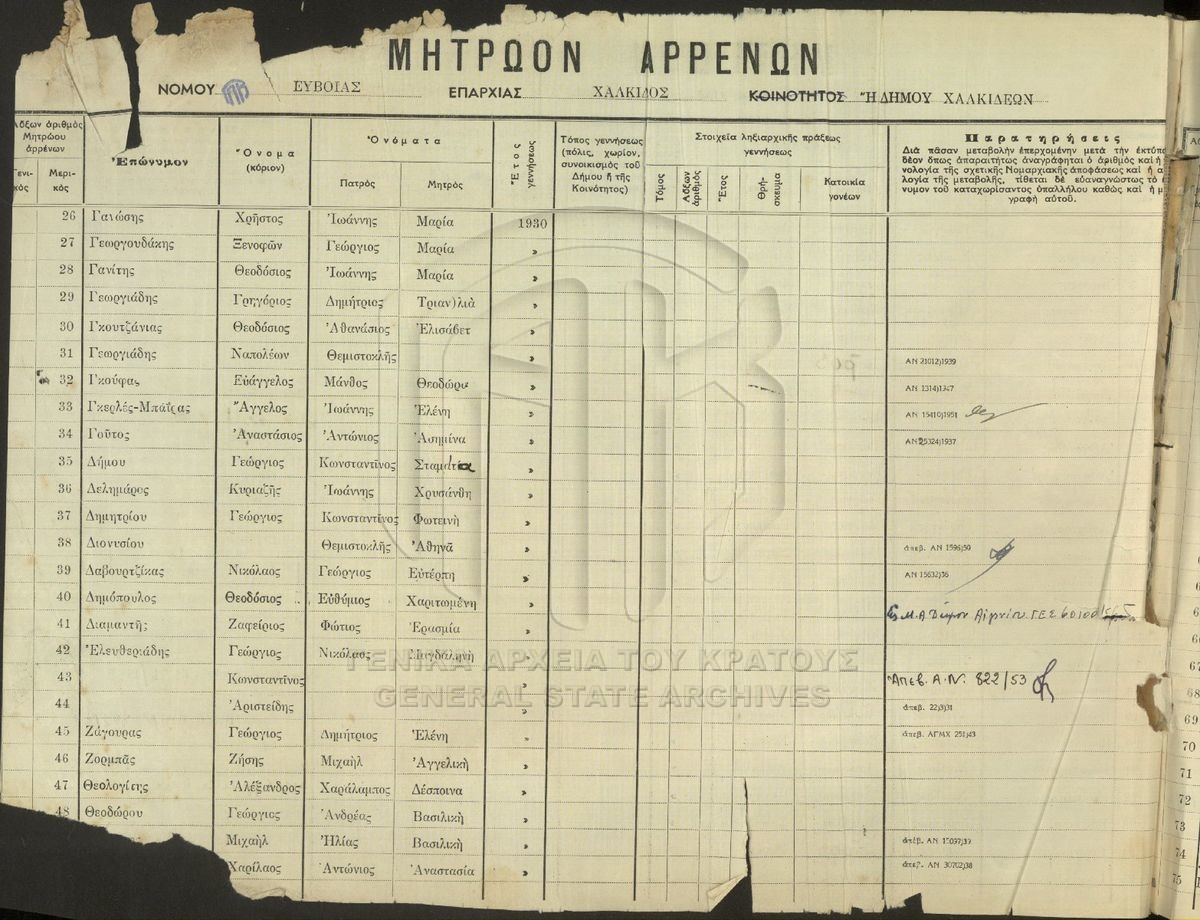 ΜΗΤΡΩΟΝ ΑΡΡΕΝΩΝ
ΝΟΜΟΥ ΕΥΒΟΙΑΣ ΕΠΑΡΧΙΑΣ ΧΑΛΚΙΔΟΣ ΚΟΙΝΟΤΗΤΟΣ Ἢ ΔΗΜΟΥ ΧΑΛΚΙΔΕΩΝ
Αὔξων ἀριθμὸς Μητρώου ἀρρένων
Μερικός
Ἐπώνυμον
Ὄνομα (κύριον)
Ὀνόματα
Πατρός Μητρός
Ἔτος γεννήσεως
Τόπος γεννήσεως (πόλις, χωρίον, συνοικισμὸς τοῦ Δήμου ἢ τῆς Κοινότητος)
Στοιχεῖα ληξιαρχικῆς πράξεως γεννήσεως
Τόμος Αὔξων ἀριθμὸς Ἔτος Θρήσκευμα Κατοικία γονέων
Παρατηρήσεις
Διὰ πᾶσαν μεταβολὴν ἐπερχομένην μετὰ τὴν ἐκτύπ
δέον ὅπως ἀπαραιτήτως ἀναγράφηται ὁ ἀριθμὸς καὶ ἡ
νολογία τῆς σχετικῆς Νομαρχιακῆς ἀποφάσεως καὶ ἡ α
λογία τῆς μεταβολῆς, τίθεται δὲ εὐαναγνώστως τὸ ἐ
νυμον τοῦ καταχωρίσαντος ὑπαλλήλου καθὼς καὶ ἡ μ
γραφὴ αὐτοῦ.
26 Γανώσης Χρῆστος Ἰωάννης Μαρία 1930
27 Γεωργουδάκης Ξενοφῶν Γεώργιος Μαρία »
28 Γανίτης Θεοδόσιος Ἰωάννης Μαρία »
29 Γεωργιάδης Γρηγόριος Δημήτριος Τριαν)λιὰ »
30 Γκουτζάνιας Θεοδόσιος Ἀθανάσιος Ἐλισάβετ »
31 Γεωργιάδης Ναπολέων Θεμιστοκλῆς » ΑΝ 21012)1939
32 Γκούφας Εὐάγγελος Μάνθος Θεοδώρα » ΑΝ 1314)1947
33 Γκερλές-Μπαΐρας Ἄγγελος Ἰωάννης Ἑλένη » ΑΝ 15410)1951
34 Γοῦτος Ἀναστάσιος Ἀντώνιος Ἀσημίνα » ΑΝ 25324)1937
35 Δήμου Γεώργιος Κωνσταντῖνος Σταματία »
36 Δελημάρος Κυριαζῆς Ἰωάννης Χρυσάνθη »
37 Δημητρίου Γεώργιος Κωνσταντῖνος Φωτεινὴ »
38 Διονυσίου Θεμιστοκλῆς Ἀθηνᾶ » ἀπεβ. ΑΝ 1596)50
39 Δαβουρτζίκας Νικόλαος Γεώργιος Εὐτέρπη » ΑΝ 15632)36
40 Δημόπουλος Θεοδόσιος .. Εὐθύμιος Χαριτωμένη »
41 Διαμαντῆς Ζαφείριος Φώτιος Ἐρασμία »
42 Ἐλευθεριάδης Γεώργιος Νικόλαος Μαγδαληνὴ »
43 Κωνσταντῖνος » Ἀπεβ. Α.Ν. 822/53
44 Ἀριστείδης » ἀπεβ. 22)3)31
45 Ζάγουρας Γεώργιος Δημήτριος Ἑλένη » ἀπεβ. ΑΓΜΧ 251)43
46 Ζορμπᾶς Ζήσης Μιχαὴλ Ἀγγελικὴ »
47 Θεολογίτης Ἀλέξανδρος Χαράλαμπος Δέσποινα »
48 Θεοδώρου Γεώργιος Ἀνδρέας Βασιλικὴ »
Μιχαὴλ Ἠλίας Βασιλικὴ » ἀπεβ. ΑΝ 15037)39
Χαρίλαος Ἀντώνιος Ἀναστασία » ἀπεβ. ΑΝ 30702)38
ΓΕΝΙΚΑ ΑΡΧΕΙΑ ΤΟΥ ΚΡΑΤΟΥΣ
GENERAL STATE ARCHIVES
67
68
69
70
71
72
73
74
75